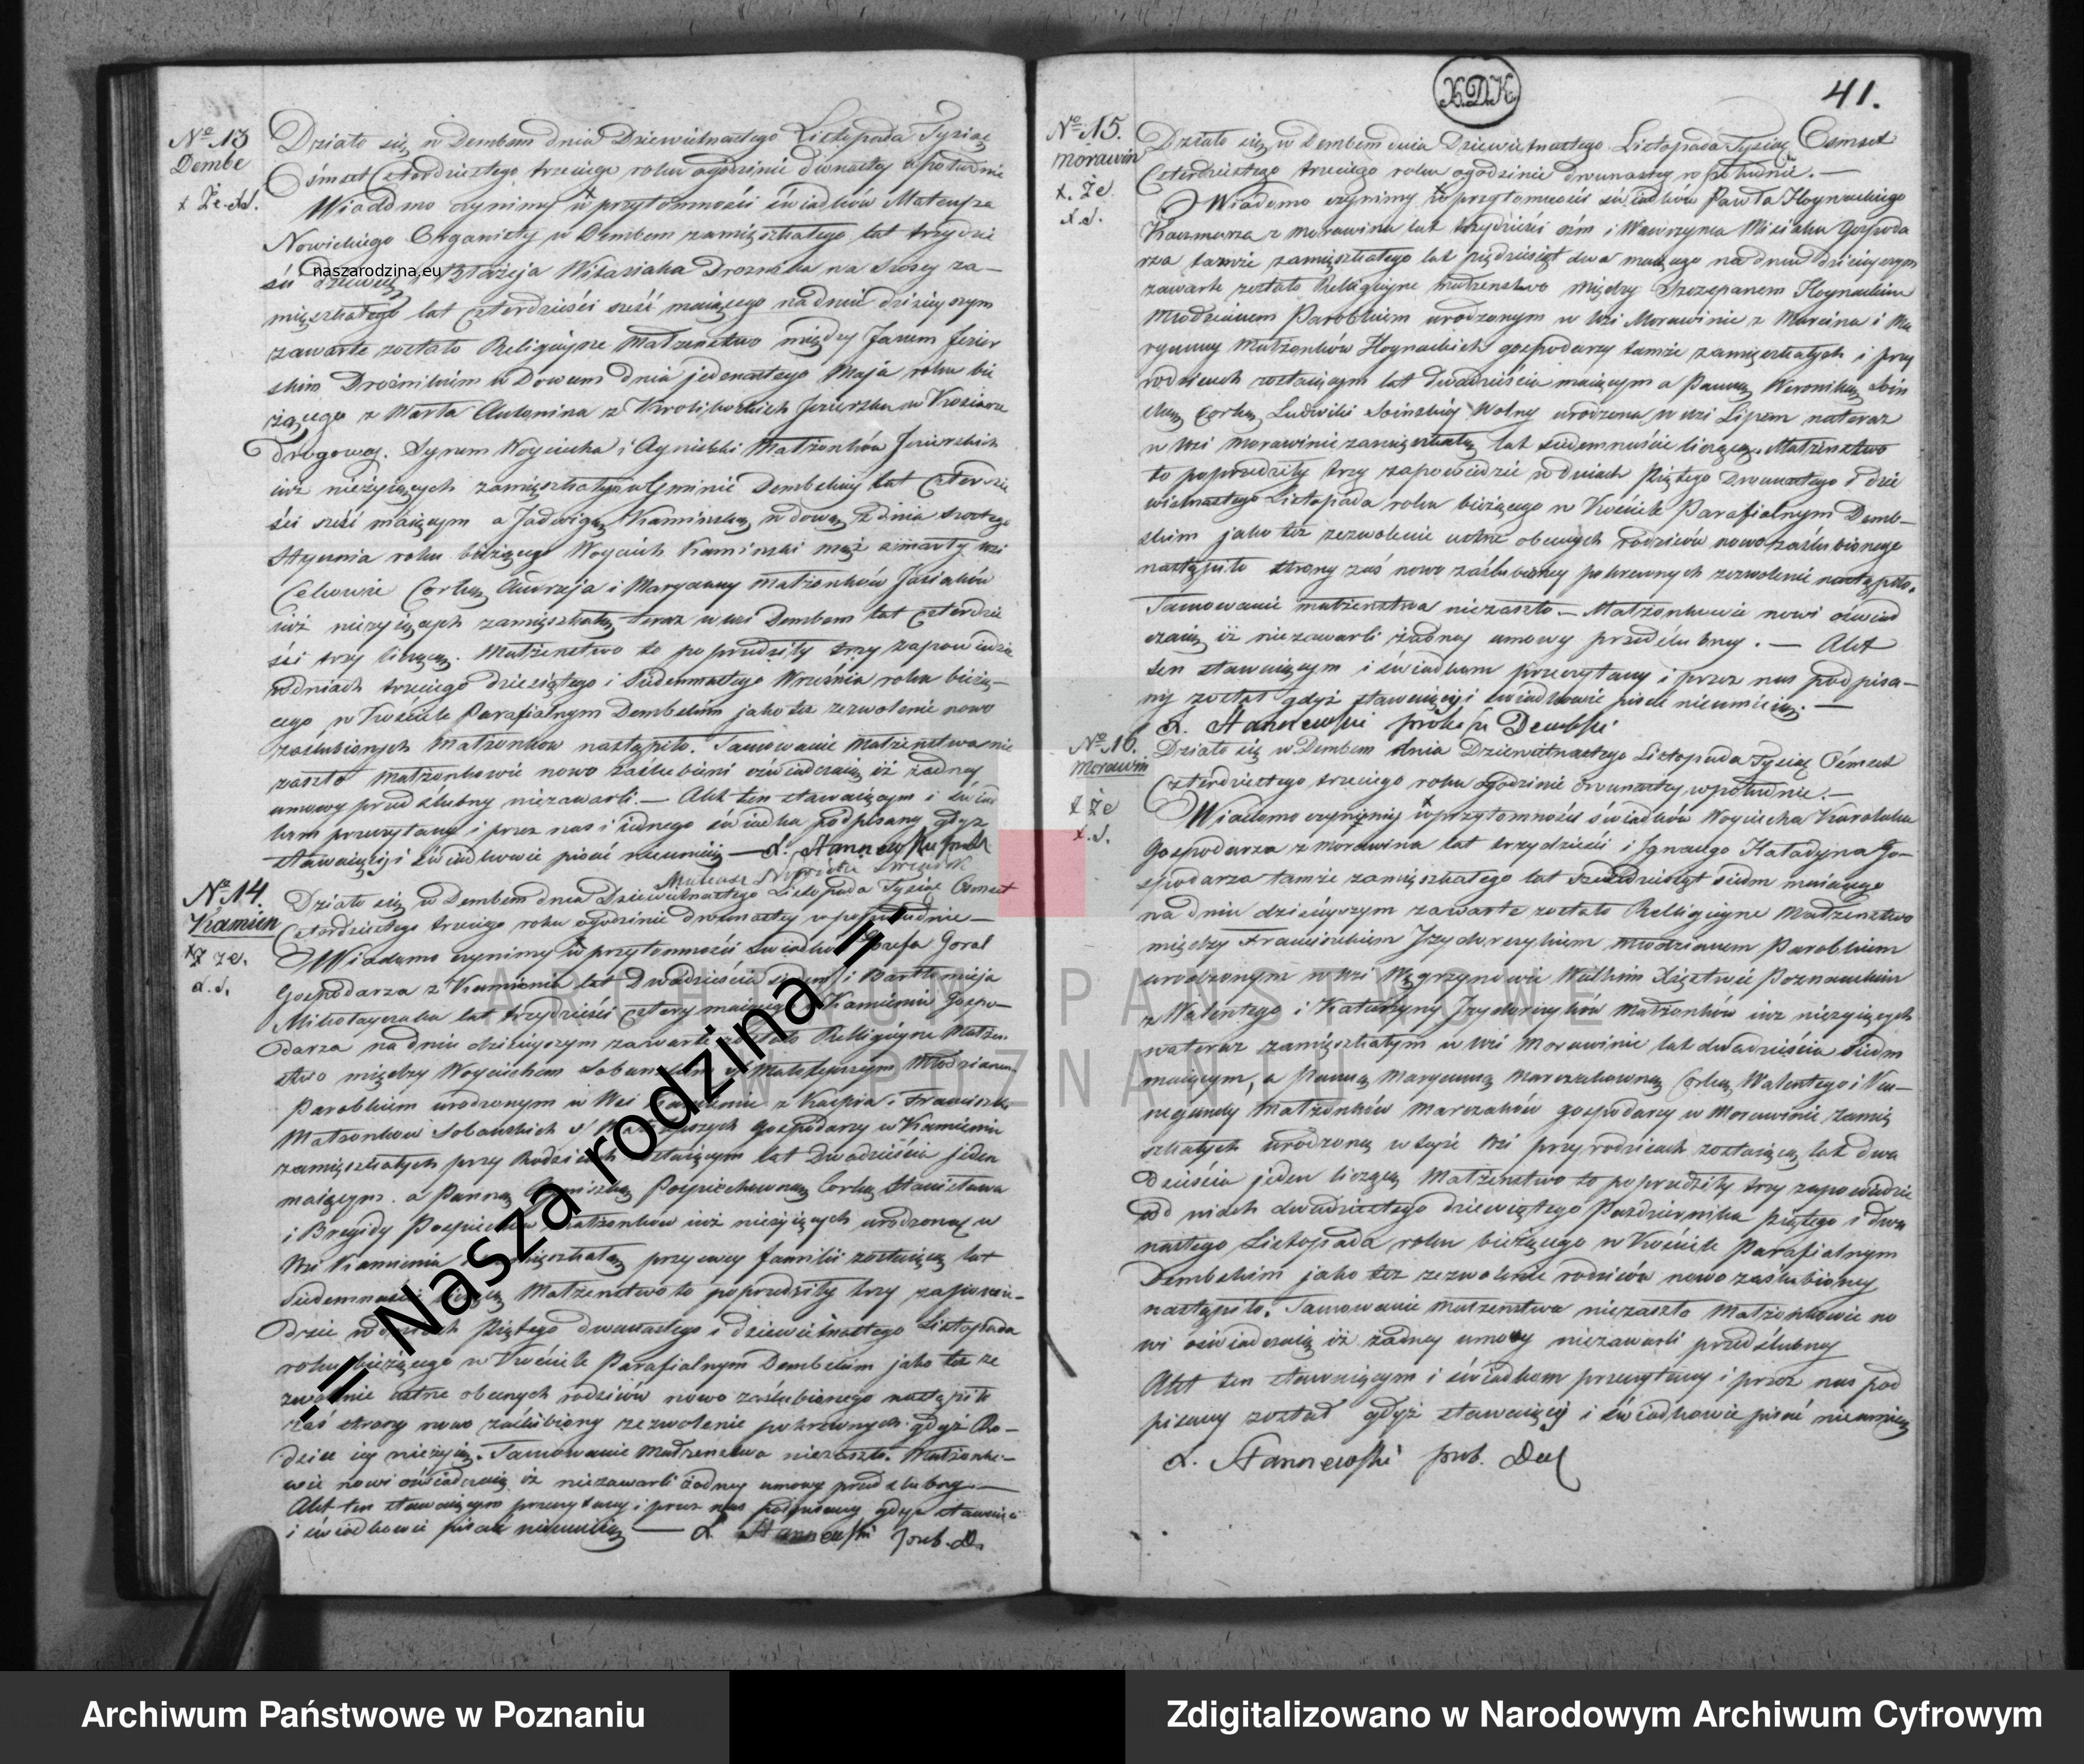 No 13
Dembe
Działo się w Dembem dnia Dziewiętnastego Listopada Tysiąc
Ośmset Czterdziestego trzeciego roku ogodzinie dwunastey wpołudnie
Wiadomo czynimy iż w przytomności świadków Mateusza
Nowickiego Organisty w Dembem zamięszkałego lat trzydzie
ści dziewięć i Błażeja Witasiaka Drożnika na szosey za-
mięszkałego lat czterdzieści sześć maiącego nadniu dzisieyszym
zawarte zostało Religiyne Małżeństwo między Janem Jezier
skim Drożnikiem Wdowcem dnia jedenastego Maja roku bie
żącego z Marła Antonina z Jezierska w Kosiarce
Drogowey. Synem Woyciecha i Agnieszki Małżonków Jezierskich
iuż nieżyiących zamięszkałego w Gminie Dembskiey lat czterdzie
ści sześć maiącym a Jadwigą Kamińską wdową z dnia szostego
Stycznia roku bieżącego Woyciech Kaminski mąż zmarły wsi
Cekowie Corką Andrzeja i Maryanny Małżonków Jasiaków
iuż nieżyiących zamięszkałą teraz w wsi Dembem lat czterdzie
ści trzy liczącą. Małżeństwo to poprzedziły trzy zapowiedzie
wdniach trzeciego dziesiątego i Siedemnastego Września roku bieżą-
cego w Kościele Parafialnym Dembskim jako też zezwolenie nowo
zaślubionych Małżonków nastąpiło. Tamowanie Małżeństwa nie
zaszło Małżonkowie nowo zaślubieni oświadczaią iż żadney
umowy przed ślubny niezawarli. — Akt ten stawaiącym i świad
kom przeczytany i przez nas i iednego świadka podpisany gdyż
stawaiący i świadkowie pisać nieumieią —
No 14.
Kamien
Działo się w Dembem dnia Dziewiętnastego Listopada Tysiąc Ośmset
Czterdziestego trzeciego roku ogodzinie dwunastey wpołudnie —
Wiadomo czynimy iż w przytomności świadków Józefa Goral
Gospodarza z Kamienia lat Dwadzieścia siedm i Bartłomieja
Mikołayczaka lat trzydzieści cztery maiącego z Kamienia Gospo-
darza na dniu dzisieyszym zawarte zostało Religiyne Małżen
stwo między Woyciechem Sobanskim v Matuszczym Młodzianem
Parobkiem urodzonym w Wsi Kamieniu z Kacpra i Franciszki
Małżonków Sobańskich v gospodarzy w Kamieniu
zamięszkałych przy Rodzicach zostaiącym lat Dwadzieścia jeden
maiącym. a Panną Pospiechowną Corką Stanisława
i Brygidy Małżonków iuż nieżyiących urodzoną w
Wsi Kamieniu zamięszkałą przy swey familii zostaiącą lat
Siedemnaście liczącą Małżeństwo to poprzedziły trzy zapowie-
dzie wdniach Piątego dwunastego i dziewiętnastego Listopada
roku bieżącego w Kościele Parafialnym Dembskim jako też ze
zwolenie ustne obecnych rodziców nowo zaślubionego nastąpiło
zaś strony nowo zaślubioney zezwolenie pokrewnych gdyż Ro-
dzice iey nieżyią. Tamowanie Małżeństwa niezaszło. Małżonko-
wie nowi oświadczaią iż niezawarli żadney umowy przed slubny. —
Akt ten stawaiącym przeczytany i przez nas podpisany gdyż stawaiący
i świadkowie pisać nieumieią —
X.D.K.
41.
No 15.
Morawin
Działo się w Dembem dnia Dziewiętnastego Listopada Tysiąc Ośmset
Czterdziestego trzeciego roku ogodzinie dwunastey w południe. —
Wiadomo czynimy iż w przytomności świadków Pawła Hoynackiego
Kaczmarza z Morawina lat trzydzieści ośm i Wawrzyna Misiaka Gospoda
rza tamże zamięszkałego lat pięćdziesiąt dwa maiącego na dniu dzisieyszym
zawarte zostało Religiyne małżenstwo między Szczepanem Hoynackim
Młodzianem Parobkiem urodzonym w Wsi Morawinie z Marcina i Ma
ryanny Małżonków Hoynackich gospodarzy tamże zamięszkałych i przy
rodzicach zostaiącym lat Dwadzieścia maiącym a Panną Weroniką Soin
ską Corką Ludwiki Soinskiey Wolny urodzona w wsi Lipem nateraz
w Wsi Morawinie zamięszkałą lat siedemnaście liczącą. Małżeństwo
to poprzedziły trzy zapowiedzie wdniach Piątego Dwunastego i dzie
więtnastego Listopada roku bieżącego w Kościele Parafialnym Demb-
skim jako też zezwolenie ustne obecnych rodziców nowo zaślubionego
nastąpiło strony zaś nowo zaślubioney pokrewnych zezwolenie nastąpiło.
Tamowanie małżenstwa niezaszło — Małżonkowie nowi oświad
czaią iż niezawarli żadney umowy przedslubney. — Akt
ten stawaiącym i świadkom przeczytany i przez nas podpisa-
ny został gdyż stawaiący i świadkowie pisać nieumieią. —
No 16.
Morawin
Działo się w Dembem dnia Dziewiętnastego Listopada Tysiąc Ośmset
Czterdziestego trzeciego roku ogodzinie dwunastey wpołudnie. —
Wiadomo czyniemy iż w przytomności świadków Woyciecha Karolaka
Gospodarza z Morawina lat trzydzieści i Ignacego Kaladyna Go-
spodarza tamże zamięszkałego lat siedm maiącego
na dniu dzisieyszym zawarte zostało Religiyne Małżenstwo
między Franciszkiem Młodzianem Parobkiem
urodzonym w Wsi Węgrzynowie Wielkim Xięstwie Poznanskim
z Walentego i Katarzyny Małżonków iuż nieżyiących
nateraz zamięszkałym w Wsi Morawinie lat dwadzieścia siedm
maiącym, a Panną Maryanną Marczakowną Corką Walentego i Ku-
negundy Małżonków Marczaków gospodarzy w Morawinie zamię
szkałych urodzoną w tejże Wsi przy rodzicach zostaiącą lat dwa
dzieścia jeden liczącą Małżeństwo to poprzedziły trzy zapowiedzie
wdniach dwudziestego dziewiątego Października piątego i dwu
nastego Listopada roku bieżącego w Kościele Parafialnym
Dembskim jako też zezwolenie rodziców nowo zaślubioney
nastąpiło. Tamowanie małżenstwa niezaszło Małżonkowie no
wi oświadczaią iż żadney umowy niezawarli przedślubney
Akt ten stawaiącym i świadkom przeczytany i przez nas pod
pisany został gdyż stawaiący i świadkowie pisać nieumieią
naszarodzina.eu
-= Nasza rodzina =-
ARCHIWUM PAŃSTWOWE
W POZNANIU
Archiwum Państwowe w Poznaniu
Zdigitalizowano w Narodowym Archiwum Cyfrowym